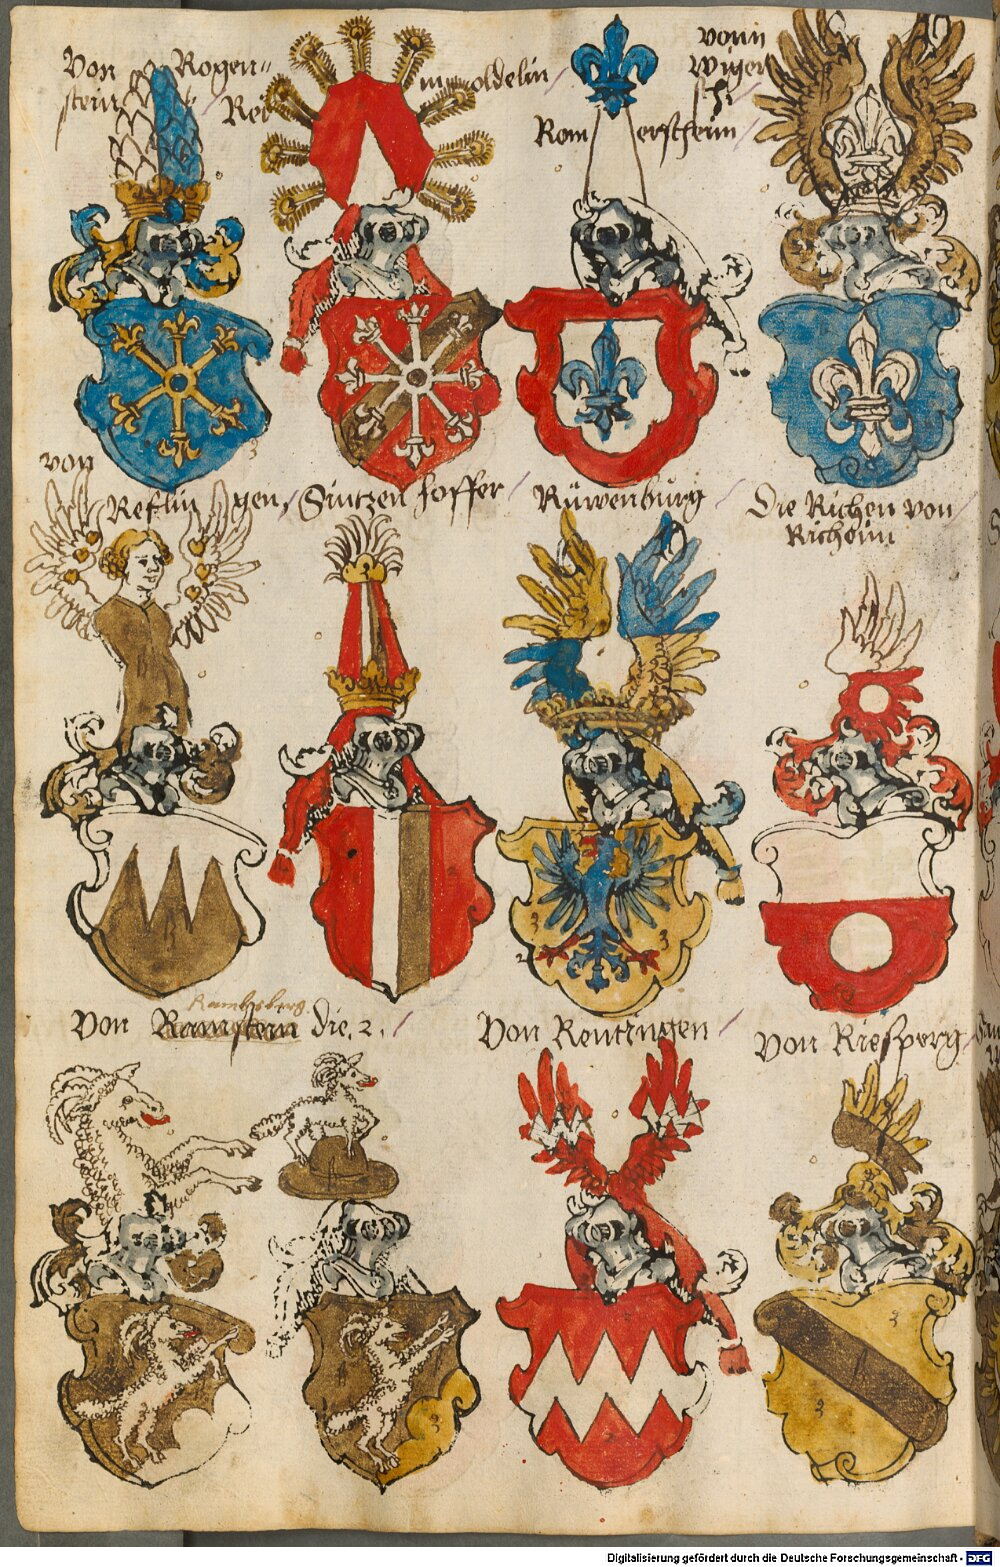 Von Rogen=
stein /
Rei m oldelin /
Rom erstheim /
vonn
Wiger
von
Reflin gen /
Sintzen hoffer /
Rüwenburg /
Die Richen von /
Richeim
Ramsberg
Von Ramstein die . 2 . /
Von Rentzingen /
Von Riesperg /
Digitalisierung gefördert durch die Deutsche Forschungsgemeinschaft - DFG